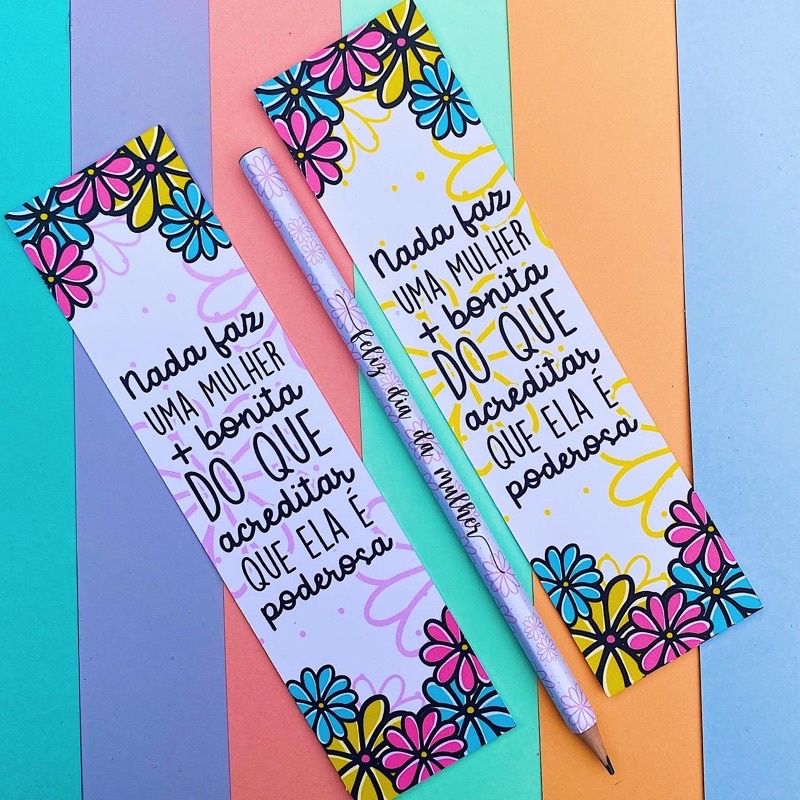 Nada faz
UMA MULHER
+ bonita
DO QUE
acreditar
QUE ELA É
poderosa
feliz dia da mulher
Nada faz
UMA MULHER
+ bonita
DO QUE
acreditar
QUE ELA É
poderosa